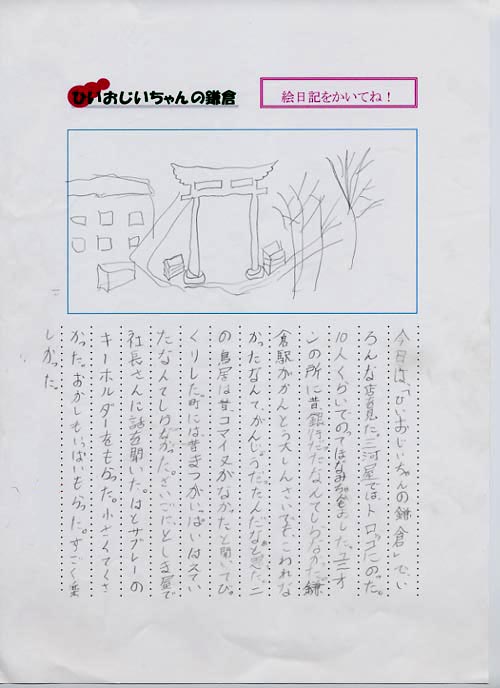 ひいおじいちゃんの鎌倉
絵日記をかいてね！
今日は、「ひいおじいちゃんの鎌倉」で、い
ろんな店を見た。三河屋では、トロッコにのった。
10人くらいでのって
ンの所に昔銀行だったなんてしらなかった。鎌
倉駅がかんとう大しんさいでもこわれな
かったなんて、がんじょうだったんだなと思った。二
の鳥居は昔コマイヌがなかったと聞いてびっ
くりした。町には昔まつがいっぱいはえてい
たなんてしらなかった。さいごにとしま屋で
社長さんに話を聞いた。はとサブレーの
キーホルダーをもらった。小さくてくさ
かった。おかしもいっぱいもらった。すごく楽
しかった。